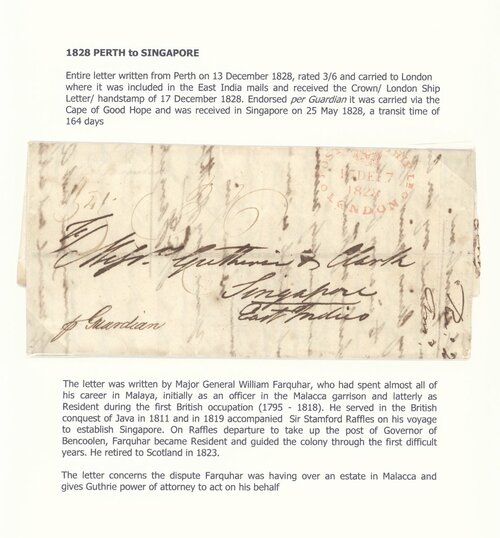 1828 PERTH to SINGAPORE
Entire letter written from Perth on 13 December 1828, rated 3/6 and carried to London
where it was included in the East India mails and received the Crown/ London Ship
Letter/ handstamp of 17 December 1828. Endorsed per Guardian it was carried via the
Cape of Good Hope and was received in Singapore on 25 May 1828, a transit time of
164 days
17 DE 17
1828
LONDON
To
Messrs. Guthrie & Clark
Singapore
East Indies
pr Guardian
The letter was written by Major General William Farquhar, who had spent almost all of
his career in Malaya, initially as an officer in the Malacca garrison and latterly as
Resident during the first British occupation (1795 - 1818). He served in the British
conquest of Java in 1811 and in 1819 accompanied Sir Stamford Raffles on his voyage
to establish Singapore. On Raffles departure to take up the post of Governor of
Bencoolen, Farquhar became Resident and guided the colony through the first difficult
years. He retired to Scotland in 1823.
The letter concerns the dispute Farquhar was having over an estate in Malacca and
gives Guthrie power of attorney to act on his behalf